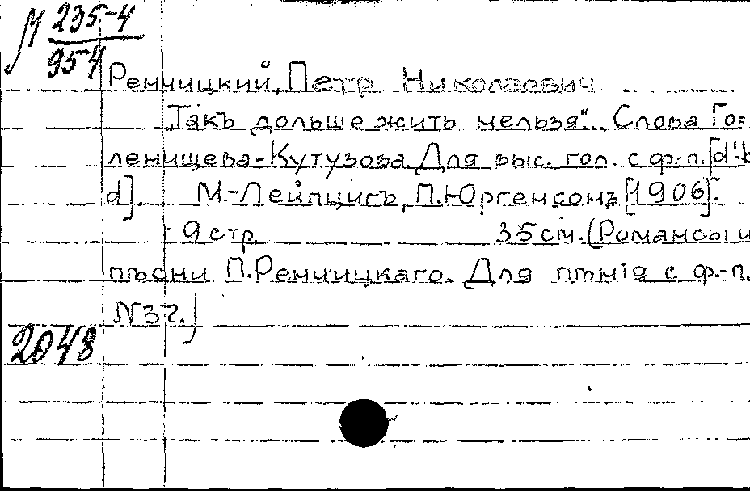 М 235-4
954
Ренчицкий, Петр Николаевич
„Такъ дольше жить нельзя“... Слова Го=
ленищева-Кутузова. Для выс. гол. с ф.-п. [d'-b
d]. М-Лейпцигъ, П. Юргенсонъ [1906].
9 стр 35 см. (Романсы и
пѣсни П. Ренчицкаго. Для пѣнія с ф.-п.
N37.)
2048